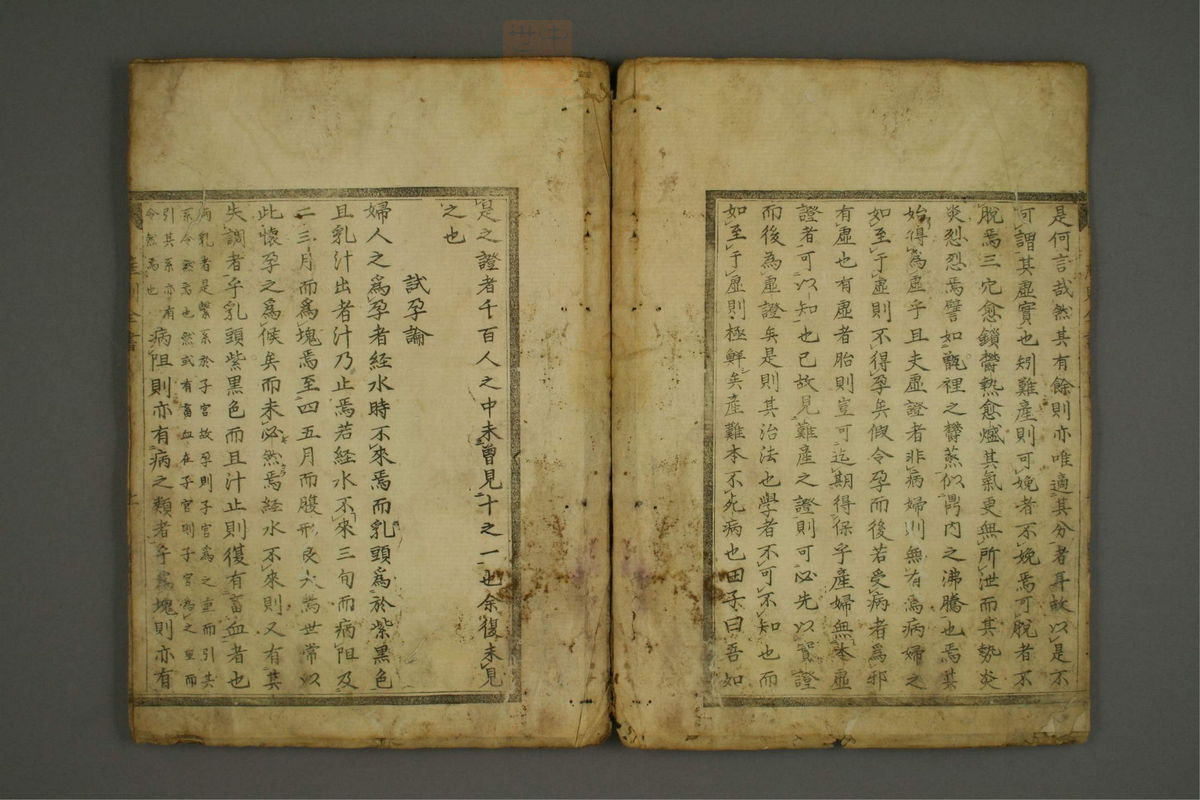 是何言哉然其有餘則亦唯適其分者耳故以是不
可謂其虛實也矧難產則可娩者不娩焉可脫者不
脫焉三宂愈鎖欝熱愈爐其氣更無所泄而其勢炎
炎烈烈焉譬如甑裡之欝蒸似鬲內之沸騰也焉其
始得為虛乎且夫虛證者非病婦則無有焉病婦之
如至于虛則不得孕矣假令孕而後若受病者為邪
有虛也有虛者胎則豈可迄期得保乎產婦無本虛
證者可以知也已故見難產之證則可必先以實證
而後為虛證矣是則其治法也學者不可不知也而
如至于虛則極鮮矣產難本不死病也田子曰吾如
是之證者千百人之中未曾見十之一也余復未見
之也
試孕論
婦人之爲孕者経水時不來焉而乳頭爲於紫黑色
且乳汁出者汁乃止焉若経水不來三旬而病阻及
二三月而爲塊焉至四五月而腹形良大焉世常以
此懷孕之爲候矣而未必然焉経水不來則又有其
失調者乎乳頭紫黑色而且汁止則復有畜血者也
病乳者是繫系於子宮故孕則子宮爲之重而引其
系令然者也然或有畜血在子宮則子宮爲之重而
引其系亦有
令然焉也
病阻則亦有病之類者乎爲塊則亦有